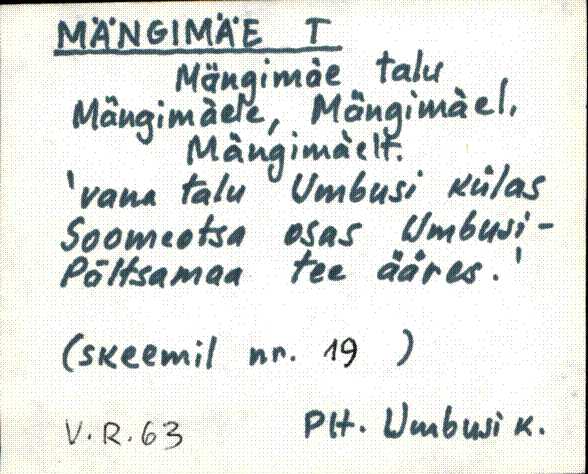 MÄNGIMÄE T
Mängimäe talu
Mängimàele, Mängimàel,
Mängimàelt.
'vana talu Umbusi külas
Soomeotsa osas Umbusi-
Põltsamaa tee ääres.'
(skeemil nr. 19 )
V.R.63 Plt. Umbusi k.